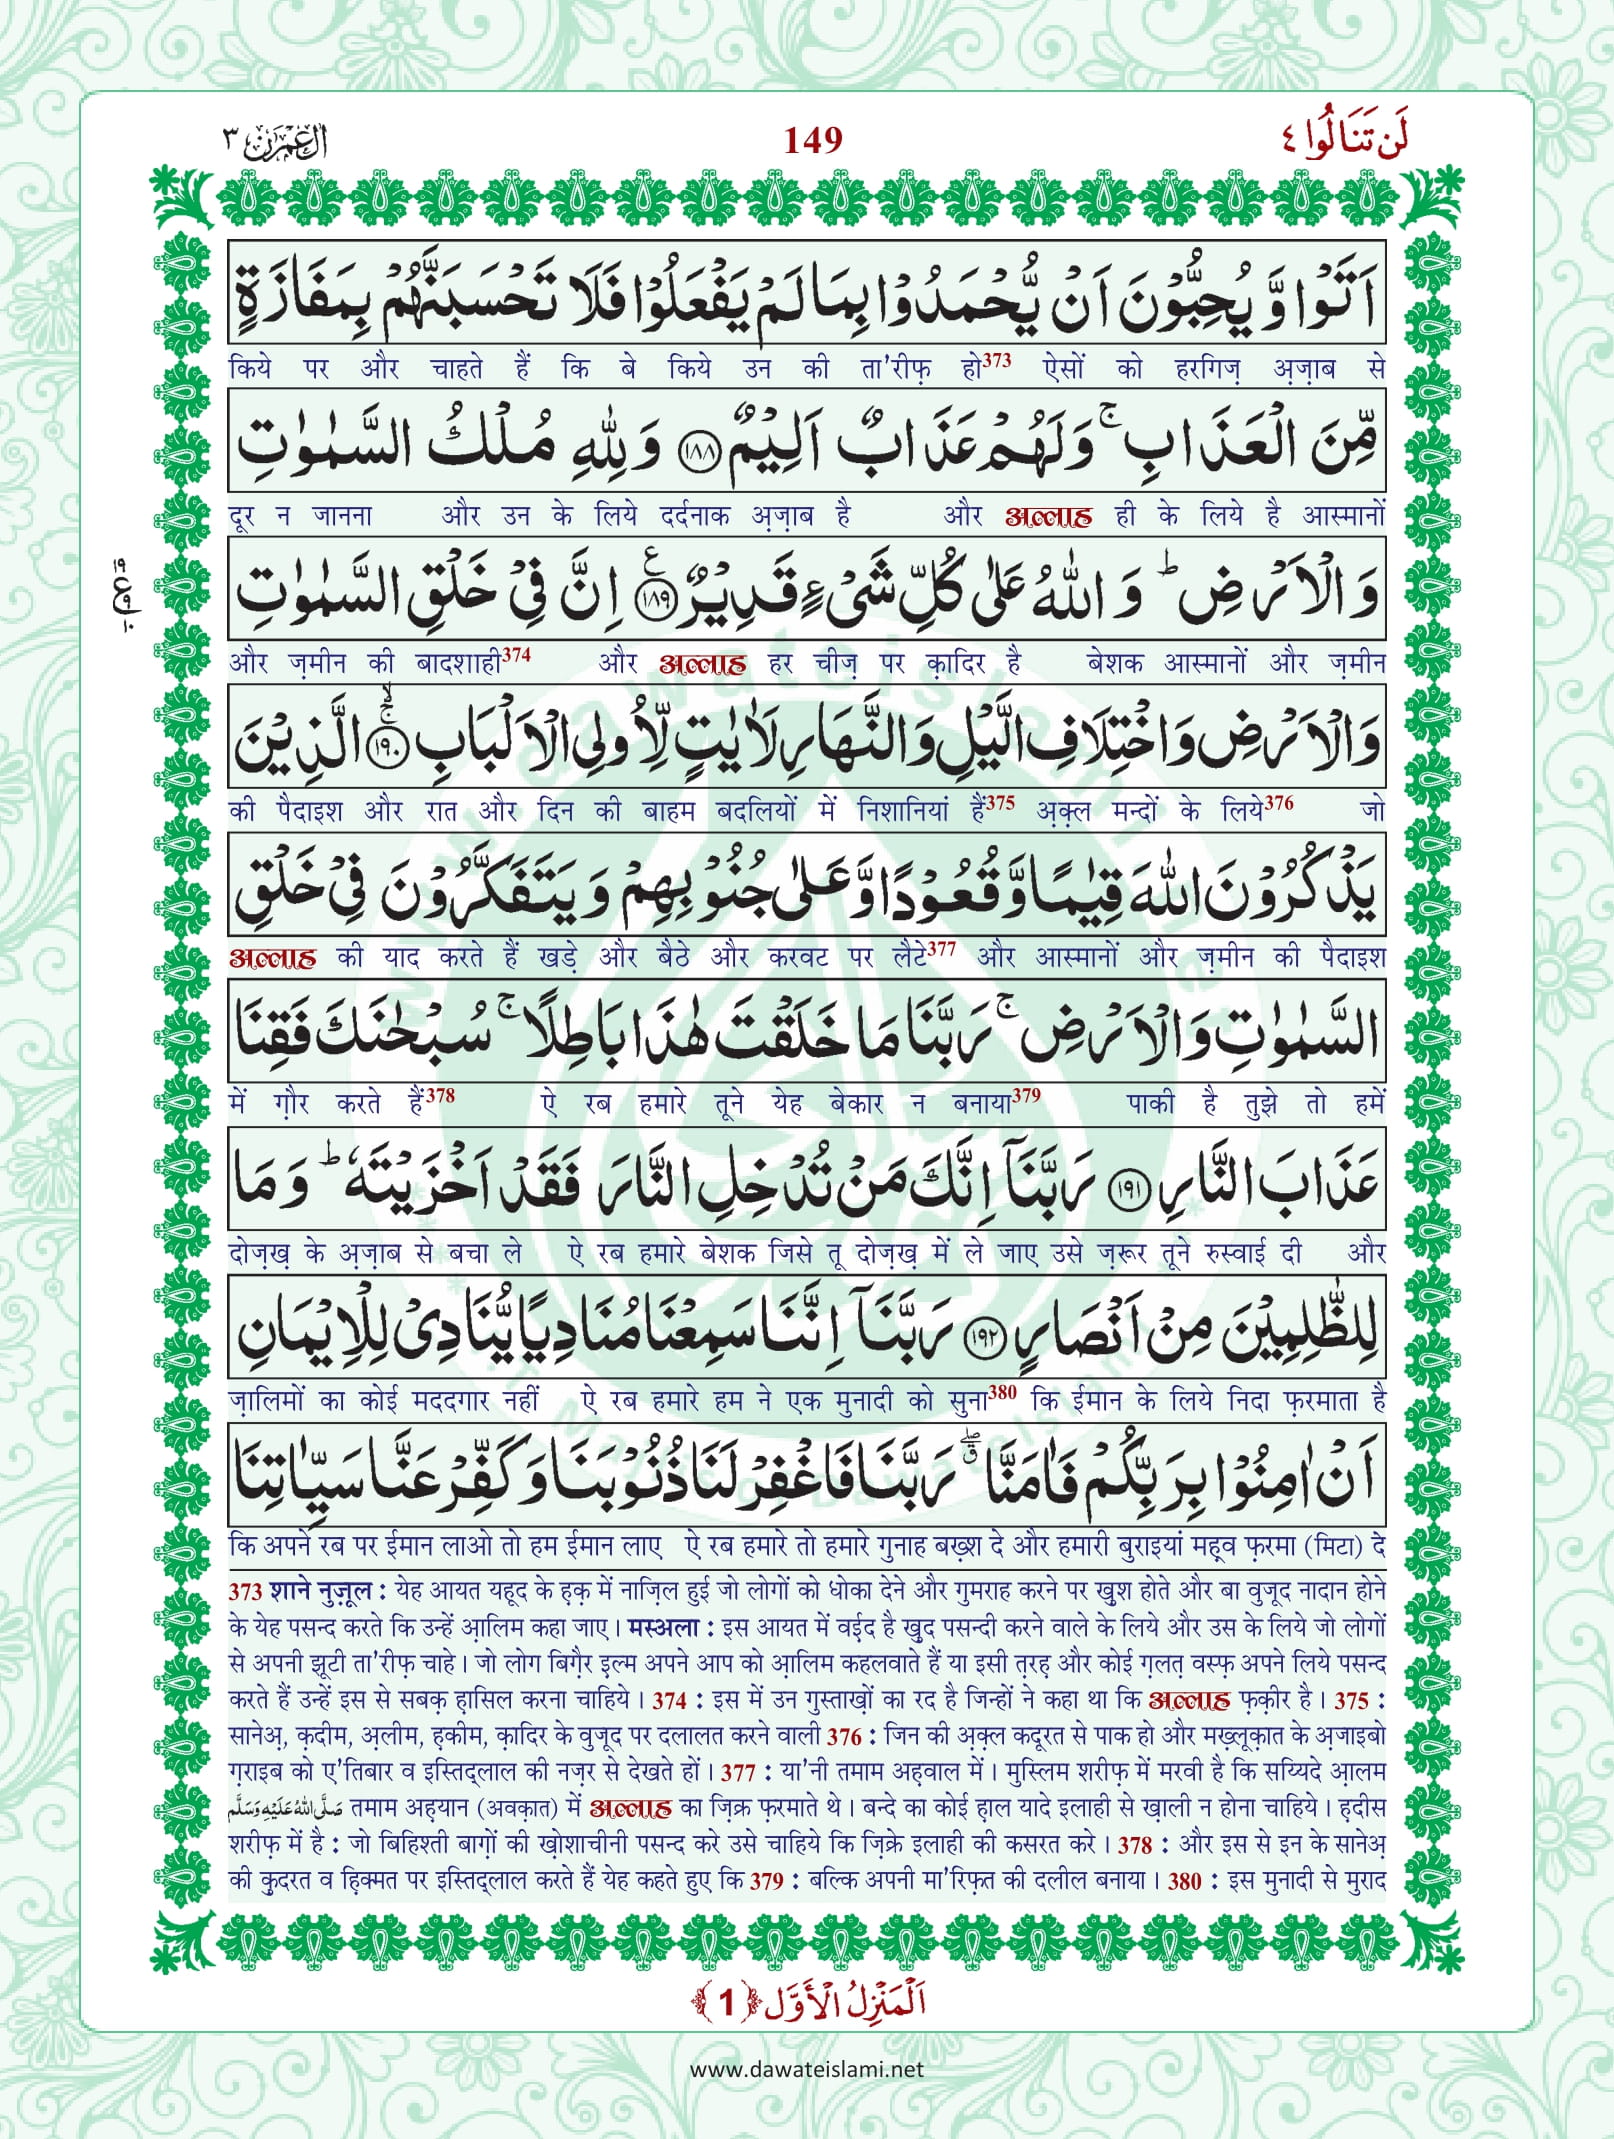 لَنْ تَنَالُوا ٤
149
اٰل عِمْرٰن ٣
اَتَوْا وَّ یُحِبُّوْنَ اَنْ یُّحْمَدُوْا بِمَا لَمْ یَفْعَلُوْا فَلَا تَحْسَبَنَّهُمْ بِمَفَازَةٍ
किये पर और चाहते हैं कि बे किये उन की ता'रीफ़ हो373 ऐसों को हरगिज़ अ़ज़ाब से
مِّنَ الْعَذَابِۚ وَ لَهُمْ عَذَابٌ اَلِیْمٌ ﴿۱۸۸﴾ وَ لِلّٰهِ مُلْكُ السَّمٰوٰتِ
दूर न जानना और उन के लिये दर्दनाक अ़ज़ाब है और अल्लाह ही के लिये है आस्मानों
وَ الْاَرْضِؕ وَ اللّٰهُ عَلٰى كُلِّ شَیْءٍ قَدِیْرٌ ﴿۱۸۹﴾ اِنَّ فِیْ خَلْقِ السَّمٰوٰتِ
और ज़मीन की बादशाही374 और अल्लाह हर चीज़ पर क़ादिर है बेशक आस्मानों और ज़मीन
وَ الْاَرْضِ وَ اخْتِلَافِ الَّیْلِ وَ النَّهَارِ لَاٰیٰتٍ لِّاُولِی الْاَلْبَابِ ﴿۱۹۰﴾ الَّذِیْنَ
की पैदाइश और रात और दिन की बाहम बदलियों में निशानियां हैं375 अ़क़्ल मन्दों के लिये376 जो
یَذْكُرُوْنَ اللّٰهَ قِیٰمًا وَّ قُعُوْدًا وَّ عَلٰى جُنُوْبِهِمْ وَ یَتَفَكَّرُوْنَ فِیْ خَلْقِ
अल्लाह की याद करते हैं खड़े और बैठे और करवट पर लैटे377 और आस्मानों और ज़मीन की पैदाइश
السَّمٰوٰتِ وَ الْاَرْضِۚ رَبَّنَا مَا خَلَقْتَ هٰذَا بَاطِلًاۚ سُبْحٰنَكَ فَقِنَا
में ग़ौर करते हैं378 ऐ रब हमारे तूने येह बेकार न बनाया379 पाकी है तुझे तो हमें
عَذَابَ النَّارِ ﴿۱۹۱﴾ رَبَّنَاۤ اِنَّكَ مَنْ تُدْخِلِ النَّارَ فَقَدْ اَخْزَیْتَهٗؕ وَ مَا
दोज़ख़ के अ़ज़ाब से बचा ले ऐ रब हमारे बेशक जिसे तू दोज़ख़ में ले जाए उसे ज़रूर तूने रुस्वाई दी और
لِلظّٰلِمِیْنَ مِنْ اَنْصَارٍ ﴿۱۹۲﴾ رَبَّنَاۤ اِنَّنَا سَمِعْنَا مُنَادِیًا یُّنَادِیْ لِلْاِیْمَانِ
ज़ालिमों का कोई मददगार नहीं ऐ रब हमारे हम ने एक मुनादी को सुना380 कि ईमान के लिये निदा फ़रमाता है
اَنْ اٰمِنُوْا بِرَبِّكُمْ فَاٰمَنَّاۗۖ رَبَّنَا فَاغْفِرْ لَنَا ذُنُوْبَنَا وَ كَفِّرْ عَنَّا سَیِّاٰتِنَا
कि अपने रब पर ईमान लाओ तो हम ईमान लाए ऐ रब हमारे तो हमारे गुनाह बख़्श दे और हमारी बुराइयां मह़्व फ़रमा (मिटा) दे
373 शाने नुज़ूल : येह आयत यहूद के ह़क़ में नाज़िल हुई जो लोगों को धोका देने और गुमराह करने पर ख़ुश होते और बा वुजूद नादान होने
के येह पसन्द करते कि उन्हें आ़लिम कहा जाए। मस्अला : इस आयत में वई़द है ख़ुद पसन्दी करने वाले के लिये और उस के लिये जो लोगों
से अपनी झूटी ता'रीफ़ चाहे। जो लोग बिग़ैर इल्म अपने आप को आ़लिम कहलवाते हैं या इसी त़रह़ और कोई ग़लत़ वस्फ़ अपने लिये पसन्द
करते हैं उन्हें इस से सबक़ ह़ासिल करना चाहिये। 374 : इस में उन गुस्ताख़ों का रद है जिन्हों ने कहा था कि अल्लाह फ़क़ीर है। 375 :
सानेअ़, क़दीम, अ़लीम, ह़कीम, क़ादिर के वुजूद पर दलालत करने वाली 376 : जिन की अ़क़्ल कदूरत से पाक हो और मख़्लूक़ात के अ़जाइबो
ग़राइब को ए'तिबार व इस्तिद्लाल की नज़र से देखते हों। 377 : या'नी तमाम अह़वाल में। मुस्लिम शरीफ़ में मरवी है कि सय्यिदे आ़लम
صَلَّى اللهُ عَلَيْهِ وَسَلَّم तमाम अह़यान (अवक़ात) में अल्लाह का ज़िक्र फ़रमाते थे। बन्दे का कोई ह़ाल यादे इलाही से ख़ाली न होना चाहिये। ह़दीस
शरीफ़ में है : जो बिहिश्ती बाग़ों की ख़ोशाचीनी पसन्द करे उसे चाहिये कि ज़िक्रे इलाही की कसरत करे। 378 : और इस से इन के सानेअ़
की क़ुदरत व ह़िक्मत पर इस्तिद्लाल करते हैं येह कहते हुए कि 379 : बल्कि अपनी मा'रिफ़त की दलील बनाया। 380 : इस मुनादी से मुराद
اَلْمَنْزِلُ الْاَوَّل ﴿1﴾
www.dawateislami.net